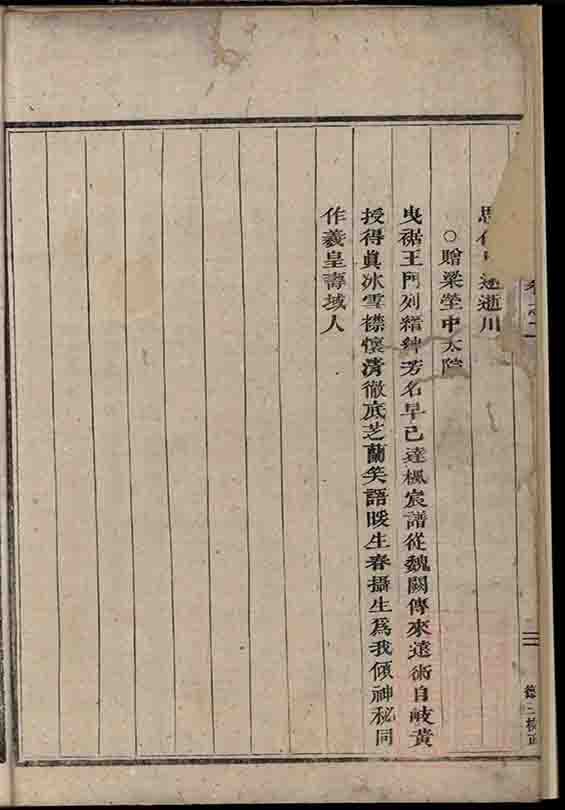 思 逝川
○贈梁瑩中太院
曳裾王門列縉紳芳名早已達楓宸譜從魏闕傳來遠術自岐黃
授得眞冰雪襟懷清徹底芝蘭笑語暖生春攝生爲我傾神秘同
作羲皇壽域人